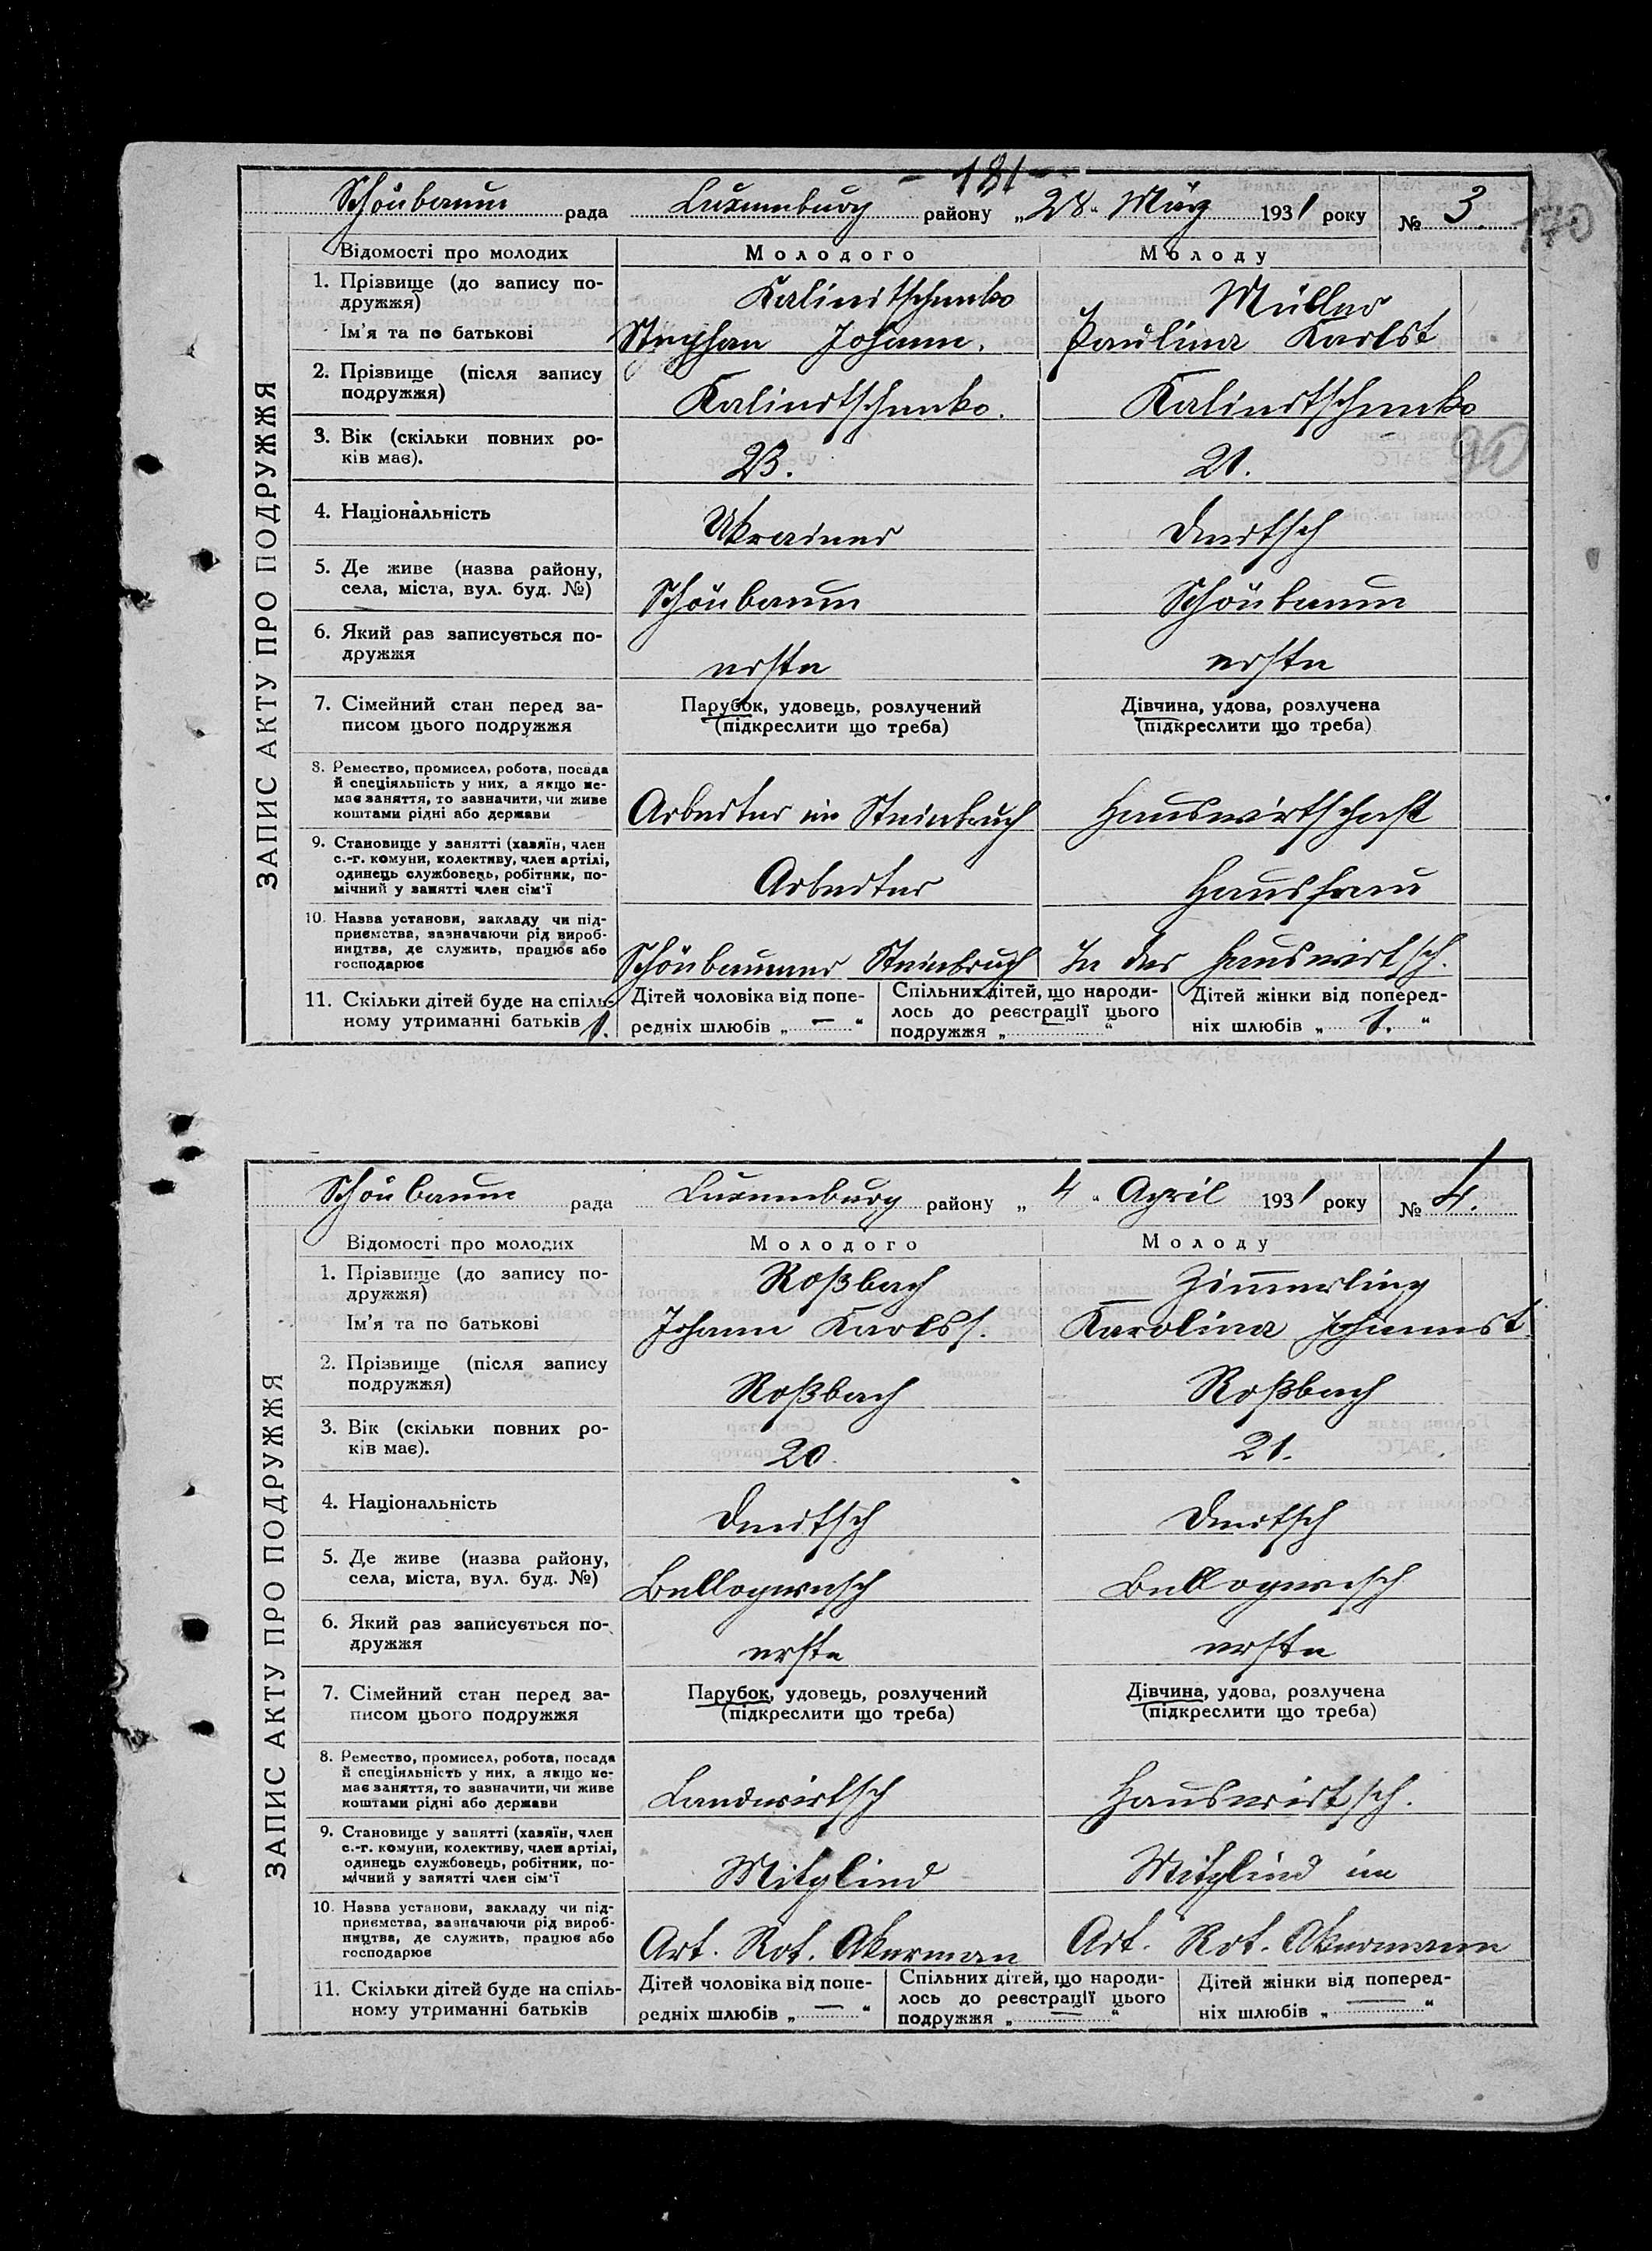 - 181 -
Schönbaum рада Luxemburg району „28“ März 1931 року № 3.
170
Відомості про молодих Молодого Молоду
1. Прізвище (до запису по- Kalinitschenko Müller
дружжя)
Ім'я та по батькові Stephan Johann. Paulina Karlst
2. Прізвище (після запису
подружжя) Kalinitschenko. Kalinitschenko
3. Вік (скільки повних ро-
ків має). 23. 21.
90
4. Національність Ukrainer Deutsch
5. Де живе (назва району,
села, міста, вул. буд. №) Schönbaum Schönbaum
6. Який раз записується по-
дружжя erste erste
7. Сімейний стан перед за- Парубок, удовець, розлучений Дівчина, удова, розлучена
писом цього подружжя (підкреслити що треба) (підкреслити що треба)
8. Ремество, промисел, робота, посада
й спеціяльність у них, а якщо не-
має заняття, то зазначити, чи живе
коштами рідні або держави Arbeiter im Steinbruch Hauswirtschaft
9. Становище у занятті (хазяїн, член
с.-г. комуни, колективу, член артілі,
одинець службовець, робітник, по-
мічний у занятті член сім'ї Arbeiter Hausfrau
10. Назва установи, закладу чи під-
приємства, зазначаючи рід вироб-
ництва, де служить, працює або
господарює Schönbaumer Steinbruch In der Hauswirtsch.
11. Скільки дітей буде на спіль- Дітей чоловіка від попе- Спільних дітей, що народи- Дітей жінки від поперед-
ному утриманні батьків 1. редніх шлюбів „ — “ лось до реєстрації цього ніх шлюбів „ 1. “
подружжя „ — “
ЗАПИС АКТУ ПРО ПОДРУЖЖЯ
Schönbaum рада Luxemburg району „4“ April 1931 року № 4.
Відомості про молодих Молодого Молоду
1. Прізвище (до запису по- Roßbach Zimmerling
дружжя)
Ім'я та по батькові Johann Karlss. Karolina Johannest
2. Прізвище (після запису
подружжя) Roßbach Roßbach
3. Вік (скільки повних ро-
ків має). 20. 21.
4. Національність Deutsch Deutsch
5. Де живе (назва району,
села, міста, вул. буд. №) Bellogwesch Bellogwesch
6. Який раз записується по-
дружжя erste erste
7. Сімейний стан перед за- Парубок, удовець, розлучений Дівчина, удова, розлучена
писом цього подружжя (підкреслити що треба) (підкреслити що треба)
8. Ремество, промисел, робота, посада
й спеціяльність у них, а якщо не-
має заняття, то зазначити, чи живе
коштами рідні або держави Landwirtsch Hauswirtsch.
9. Становище у занятті (хазяїн, член
с.-г. комуни, колективу, член артілі,
одинець службовець, робітник, по-
мічний у занятті член сім'ї Mitglied Mitglied im
10. Назва установи, закладу чи під-
приємства, зазначаючи рід вироб-
ництва, де служить, працює або
господарює Art. Rot. Akerman Art. Rot. Akermann
11. Скільки дітей буде на спіль- Дітей чоловіка від попе- Спільних дітей, що народи- Дітей жінки від поперед-
ному утриманні батьків редніх шлюбів „ — “ лось до реєстрації цього ніх шлюбів „ — “
подружжя „ — “
ЗАПИС АКТУ ПРО ПОДРУЖЖЯ